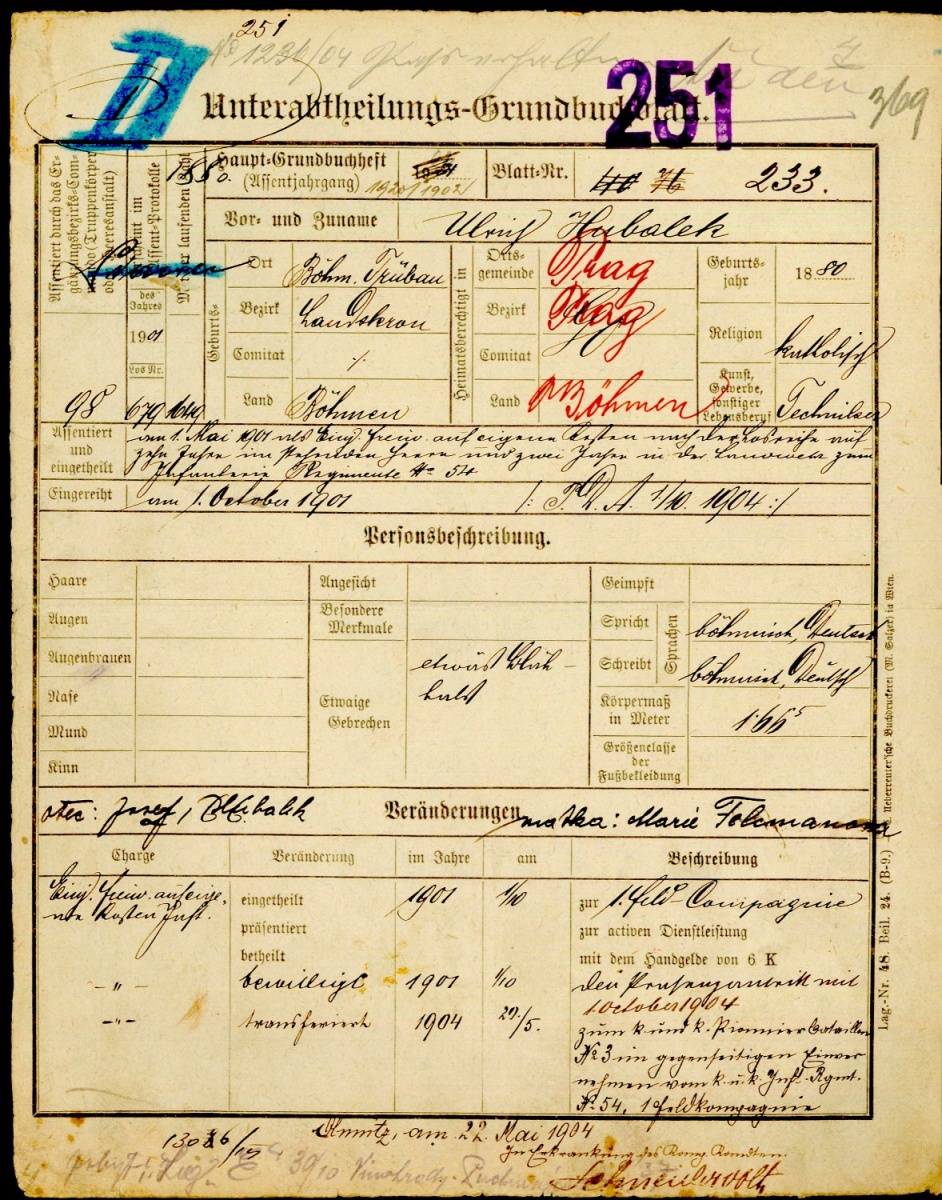 251
No 1236/04
251
369
Unterabtheilungs-Grundbuchblatt.
1880.
Haupt-Grundbuchheft
(Assentjahrgang)
1920/1902
Blatt-Nr.
76
233.
Vor- und Zuname
Ulrich Hubalek
Assentiert durch das Ergänzungsbezirks-Commando (Truppenkörper oder Heeresanstalt)
98
des Jahres
1901
Los Nr.
679
1649
Geburts-
Ort Böhm. Trübau
Bezirk Landskron
Comitat ⁒
Land Böhmen
Heimatsberechtigt in
Orts-gemeinde Prag
Bezirk Prag
Comitat
Land Böhmen
Geburts-jahr 1880
Religion katholisch
Kunst, Gewerbe, sonstiger Lebensberuf Techniker
Assentiert und eingetheilt
am 1. Mai 1901 als Einj. freiw. auf eigene Kosten nach der Losreihe auf
zehn Jahre im stehenden Heere und zwei Jahre in der Landwehr zum
Infanterie Regimente No 54
Eingereiht am 1. October 1901 /: P. D. A. 1/10. 1904 :/
Personsbeschreibung.
Haare
Augen
Augenbrauen
Nase
Mund
Kinn
Angesicht
Besondere Merkmale
Etwaige Gebrechen
etwas Blähhals
Geimpft
Sprachen
Spricht böhmisch, Deutsch
Schreibt böhmisch, Deutsch
Körpermaß in Meter 1·66⁵
Größenclasse der Fußbekleidung
otec: Josef, Hubalek
Veränderungen
matka: Marie
Charge Veränderung im Jahre am Beschreibung
Einj. freiw. auf eige-
ne Kosten Inft.
eingetheilt 1901 1/10 zur 1. Feld-Compagnie
präsentiert zur activen Dienstleistung
betheilt mit dem Handgelde von 6 K
-"- bewilligt 1901 1/10 den Präsenzantritt mit
1 October 1904
-"- transferiert 1904 29./5. zum k. und k. Pionnier Bataillon
No 3 im gegenseitigen Einver
nehmen vom k. u. k. Inft. Rgmt.
No 54, 1 Feldkompagnie
Olmütz, am 22. Mai 1904
In Erkrankung des Komp. Komdten.
Lag.-Nr. 48. Beil. 24. (B-9.)
Ueberreuter'sche Buchdruckerei (M. Salzer) in Wien.